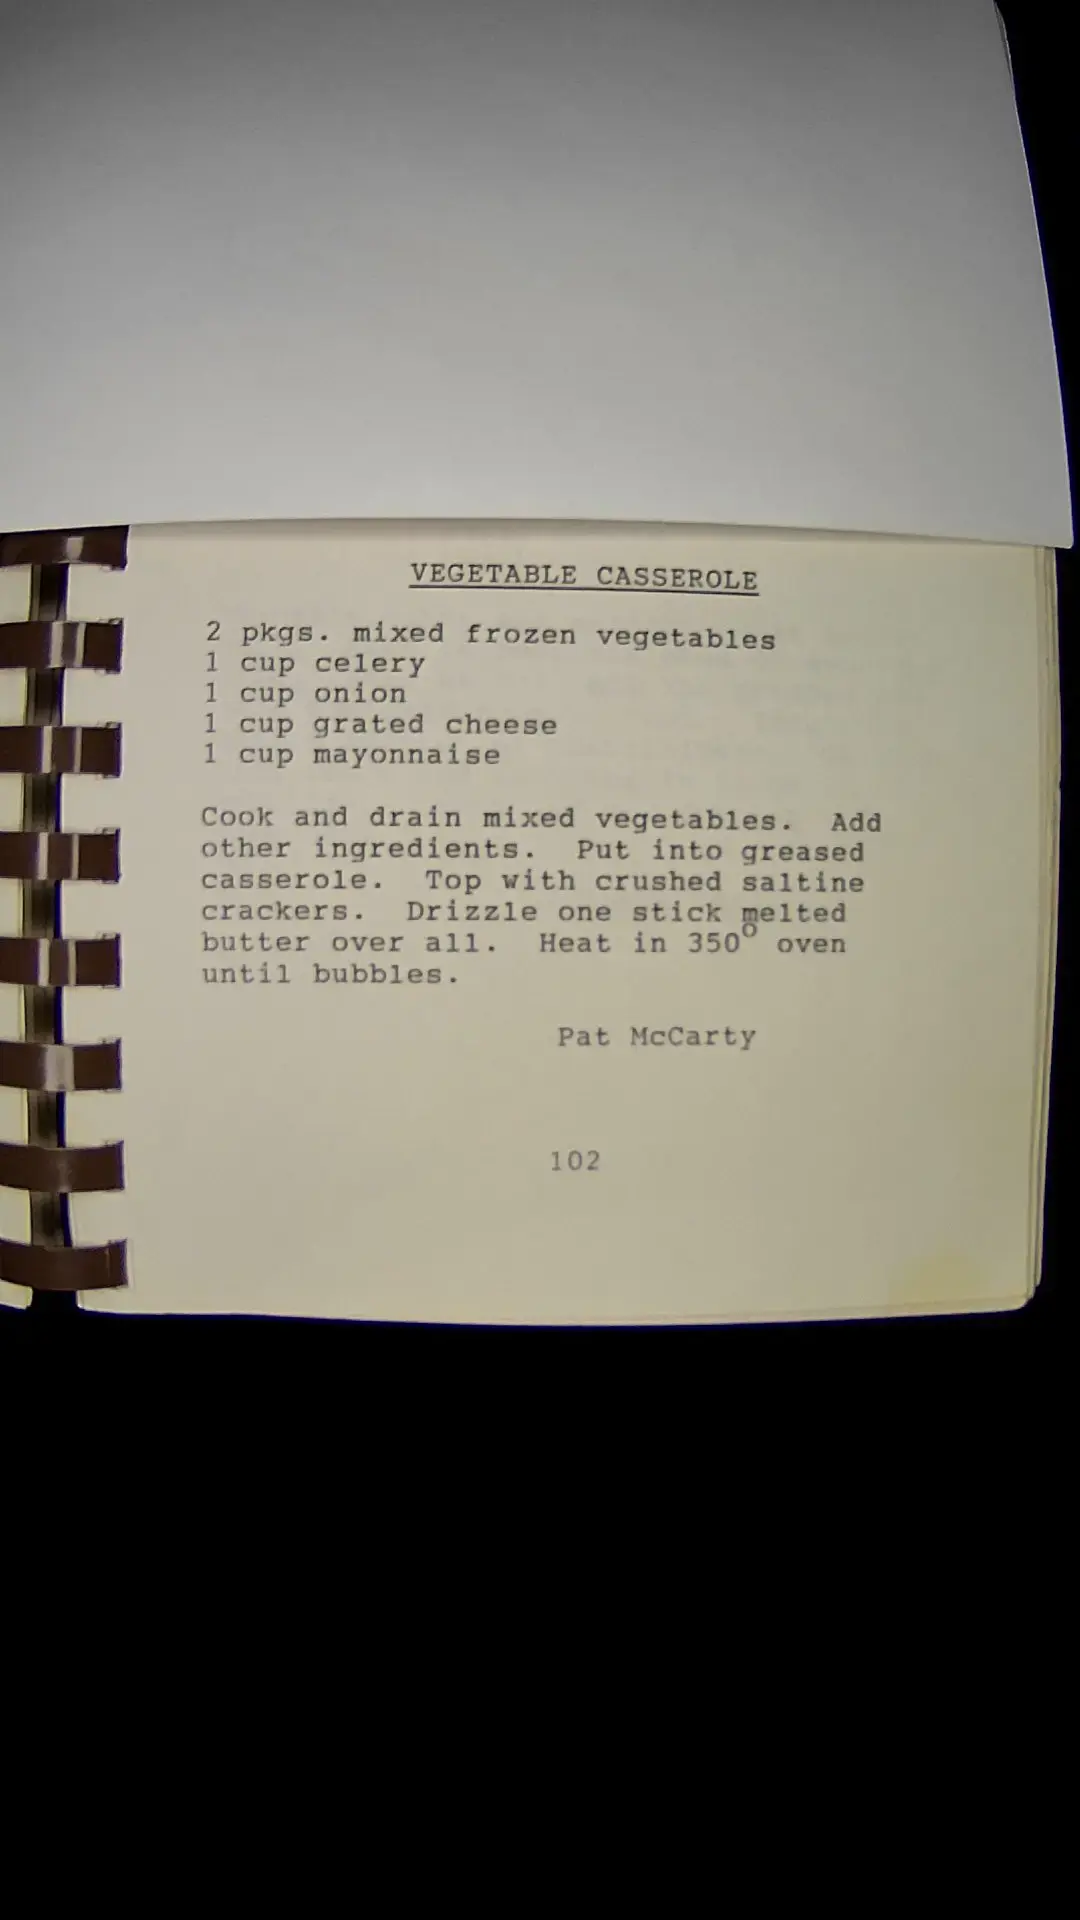 VEGETABLE CASSEROLE
2 pkgs. mixed frozen vegetables
1 cup celery
1 cup onion
1 cup grated cheese
1 cup mayonnaise
Cook and drain mixed vegetables. Add
other ingredients. Put into greased
casserole. Top with crushed saltine
crackers. Drizzle one stick melted
butter over all. Heat in 350° oven
until bubbles.
Pat McCarty
102